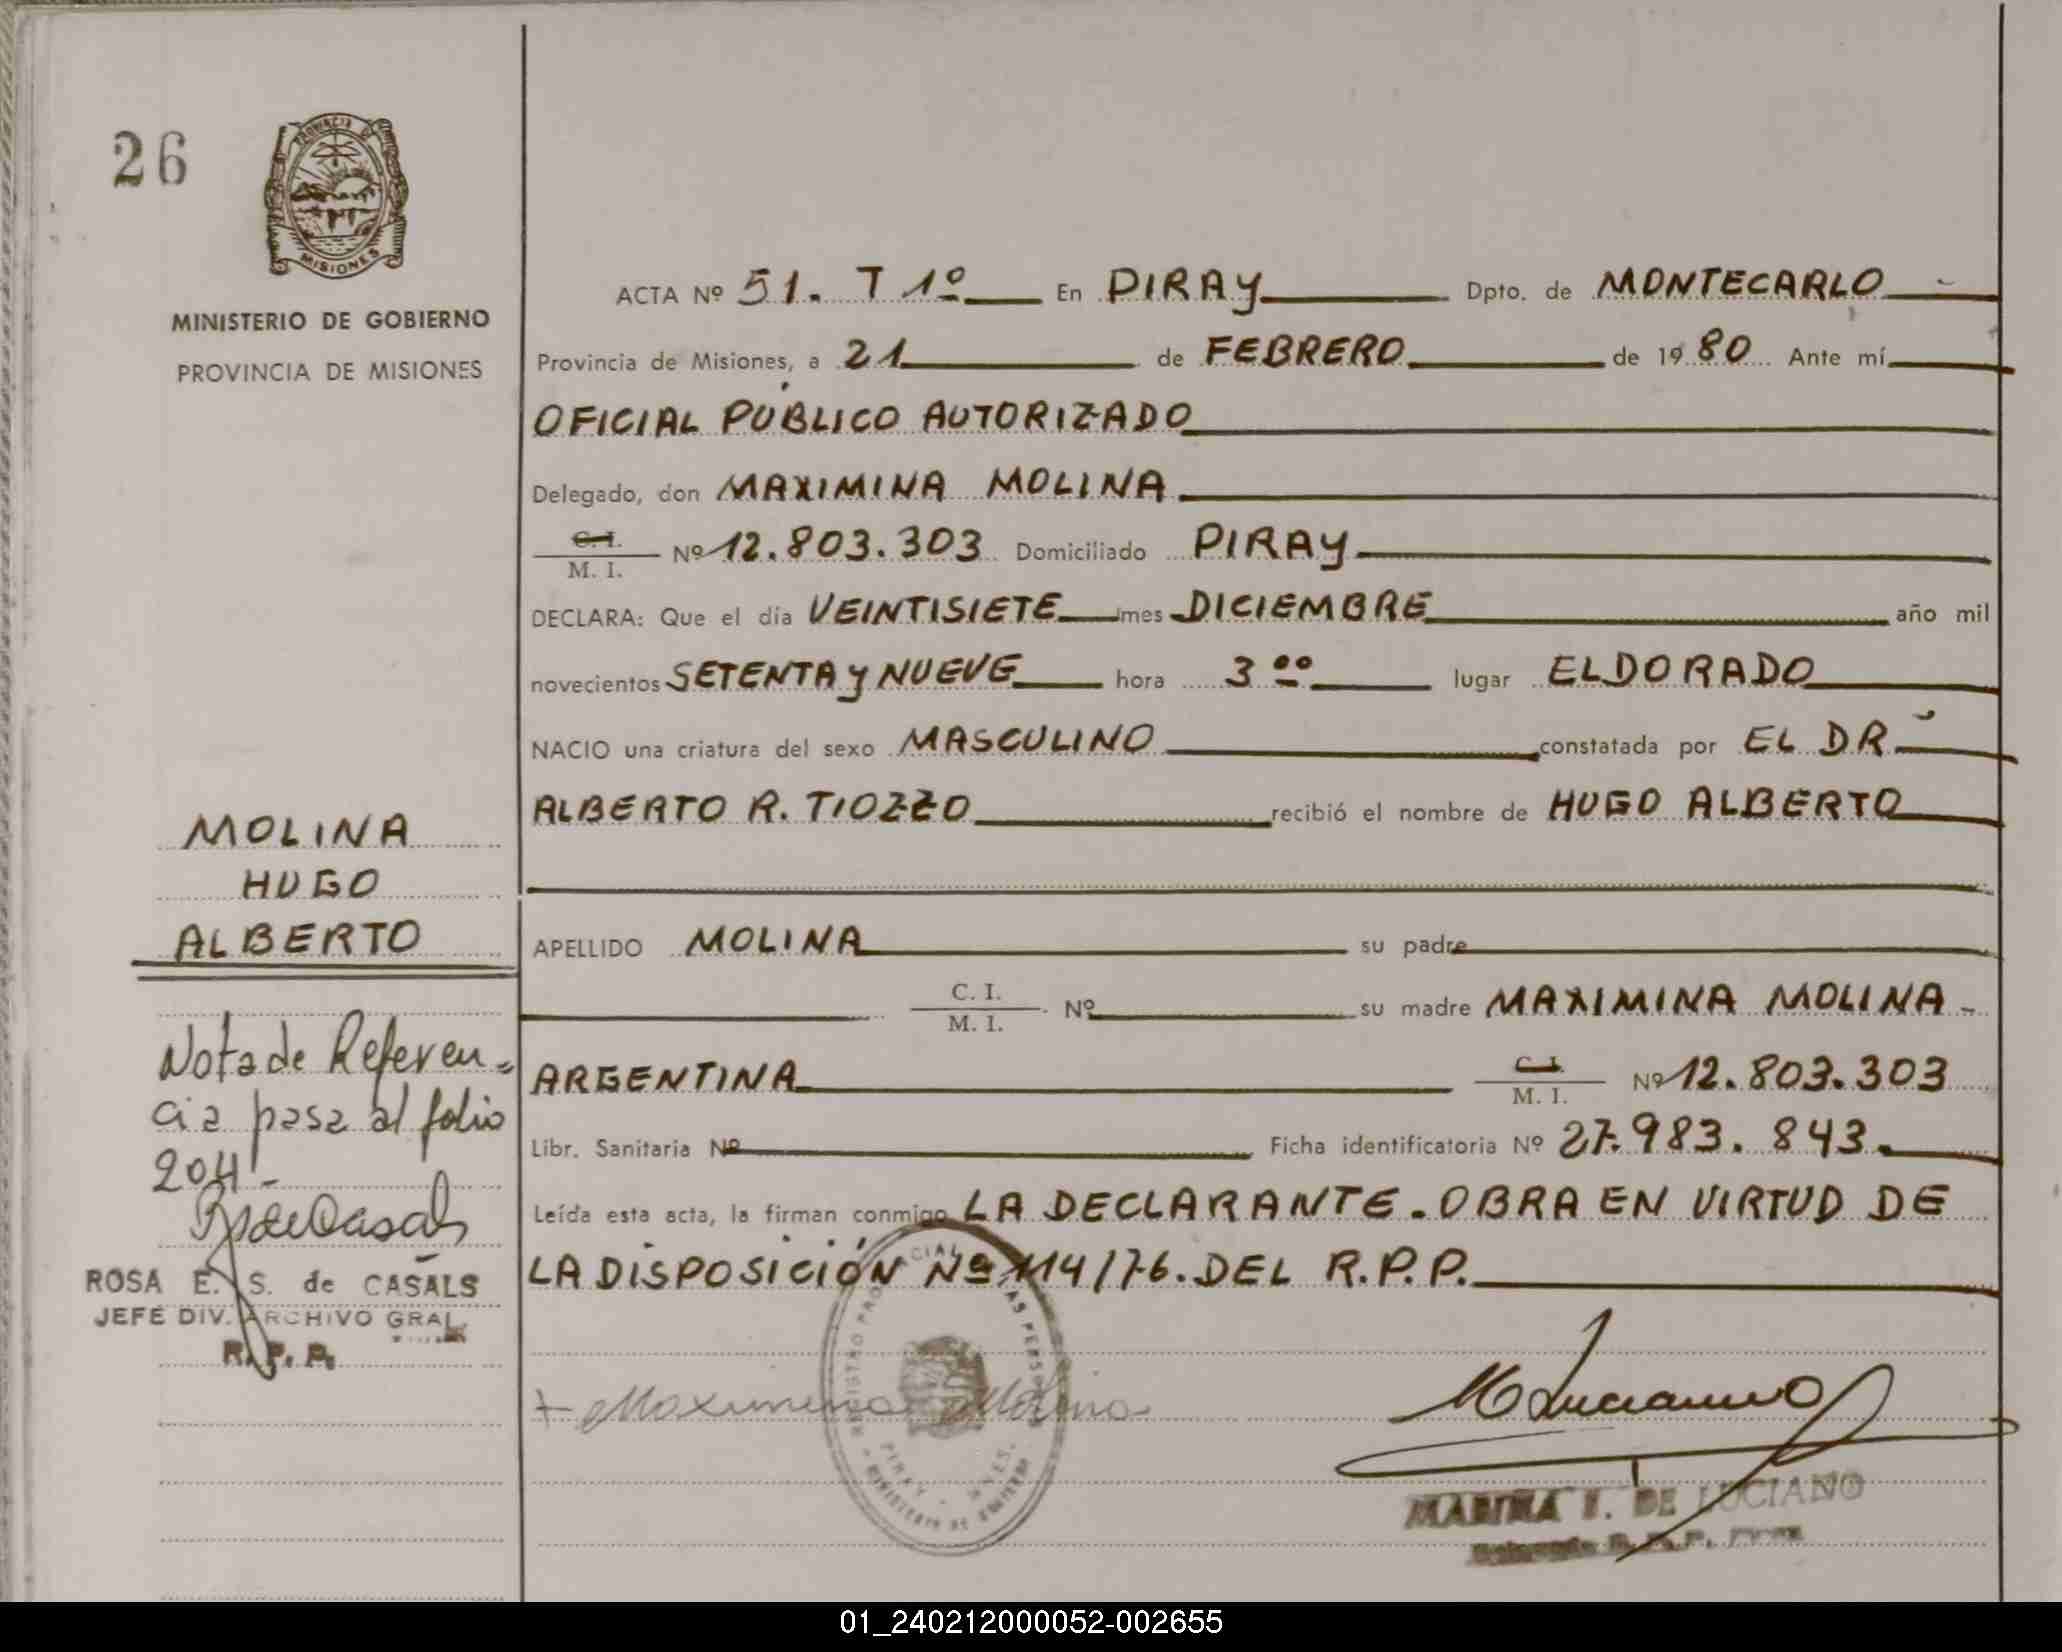 26
PROVINCIA DE
MISIONES
MINISTERIO DE GOBIERNO
PROVINCIA DE MISIONES
MOLINA
HUGO
ALBERTO
Nota de Referen=
cia pasa al folio
204.-
RSdeCasals
ROSA E. S. de CASALS
JEFE DIV. ARCHIVO GRAL.
R. P. P.
ACTA Nº 51. T 1º En PIRAY Dpto. de MONTECARLO
Provincia de Misiones, a 21 de FEBRERO de 1980 Ante mí
OFICIAL PÚBLICO AUTORIZADO
Delegado, don MAXIMINA MOLINA
C. I.
M. I. Nº 12.803.303 Domiciliado PIRAY
DECLARA: Que el día VEINTISIETE mes DICIEMBRE año mil
novecientos SETENTA y NUEVE hora 3 ºº lugar ELDORADO
NACIO una criatura del sexo MASCULINO constatada por EL DR
ALBERTO R. TIOZZO recibió el nombre de HUGO ALBERTO
APELLIDO MOLINA su padre
C. I.
M. I. Nº su madre MAXIMINA MOLINA -
ARGENTINA C. I.
M. I. Nº 12.803.303
Libr. Sanitaria Nº Ficha identificatoria Nº 27.983.843.
Leída esta acta, la firman conmigo LA DECLARANTE. OBRA EN VIRTUD DE
LA DISPOSICIÓN Nº 114/76. DEL R.P.P.
Maximina Molina
MLuciano
REGISTRO PROVINCIAL LAS PERSONAS
PIRAY - MNES.
MINISTERIO DE GOBIERNO
MARINA I. DE LUCIANO
R. P. P.
01_240212000052-002655